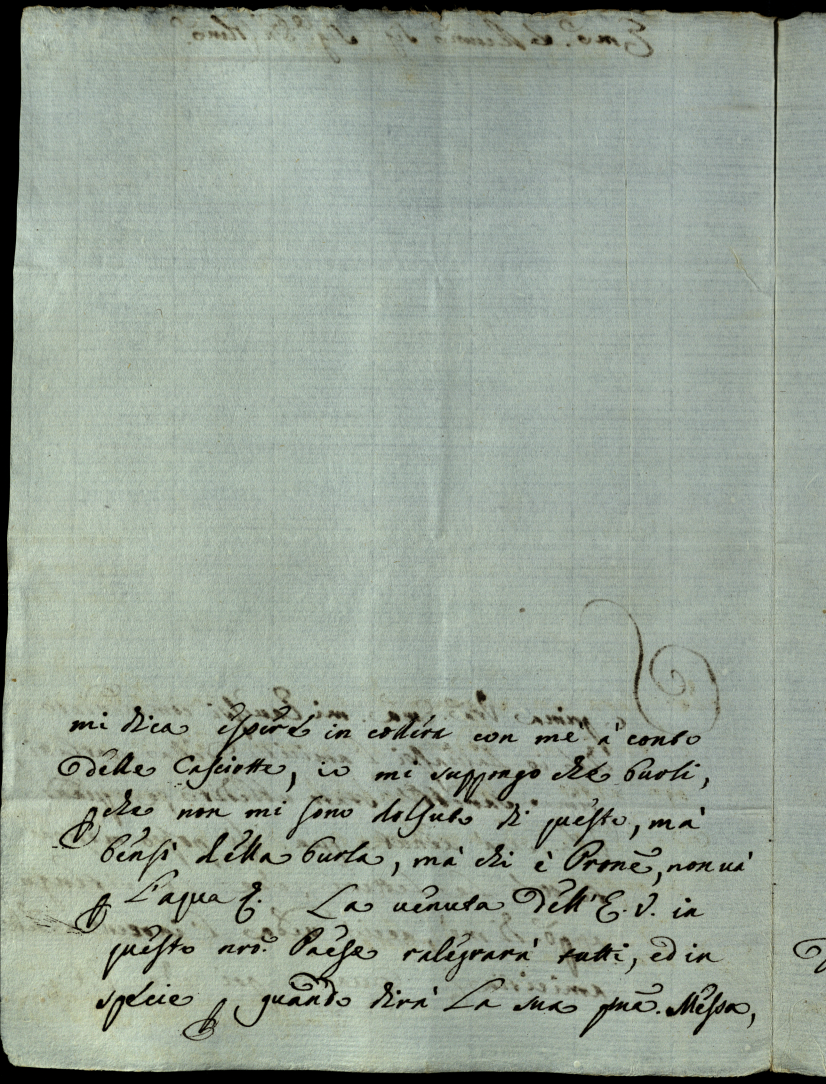 mi dica esser in collera con me à conto
delle Casciotte, io mi suppongo che burli,
che non mi sono doluto di questo, mà
bensì della burla, mà chi è Prone, non và
L'aqua &. La venuta dell'E. V. in
questo nro. Paese ralegrarà tutti, ed in
specie quando dirà La sua pma. Messa,